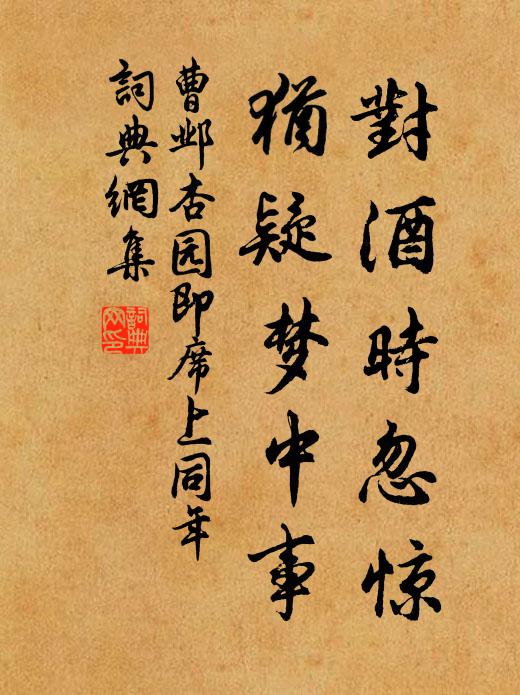 對酒時忽惊
猶疑梦中事
曹邺杏园即席上同年
詞典網集
詞典网印